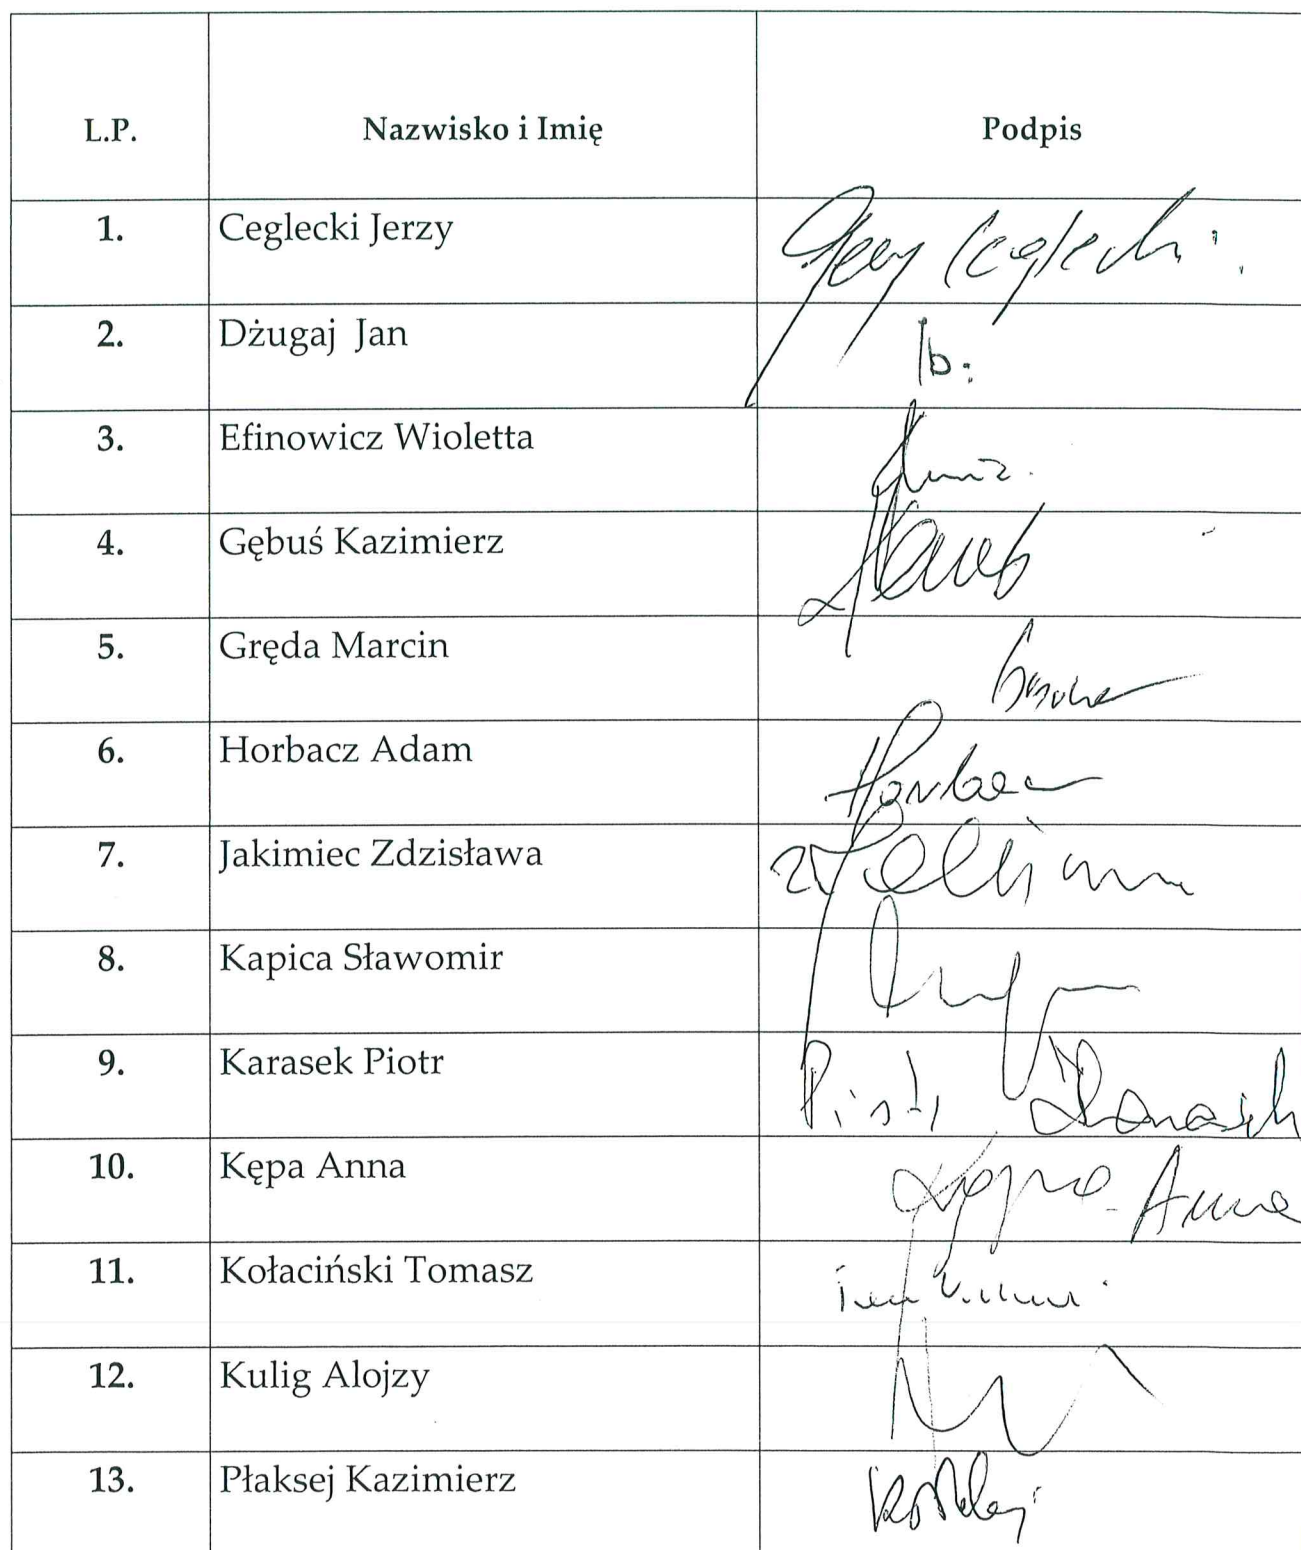 L.P. Nazwisko i Imię Podpis
1. Ceglecki Jerzy Jerzy Ceglecki
2. Dżugaj Jan
3. Efinowicz Wioletta
4. Gębuś Kazimierz
5. Gręda Marcin
6. Horbacz Adam
7. Jakimiec Zdzisława
8. Kapica Sławomir
9. Karasek Piotr Piotr Karasek
10. Kępa Anna Kępa Anna
11. Kołaciński Tomasz
12. Kulig Alojzy
13. Płaksej Kazimierz